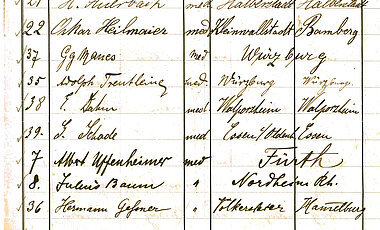 med Halberstadt Halberstadt
22 Oskar Heilmaier med Kleinwallstadt Bamberg
37 Gg Manes med Würzburg
35 Adolph Treutlein med. Würzburg Würzburg
38 E. Hahn med Walporzheim Walporzheim
39. S. Schade med Essen/Oldenb Essen
7 Albert Uffenheimer med Fürth
8. Julius Baum " Nordheim Rh.
36 Hermann Gessner " Volkersleier Hamelburg